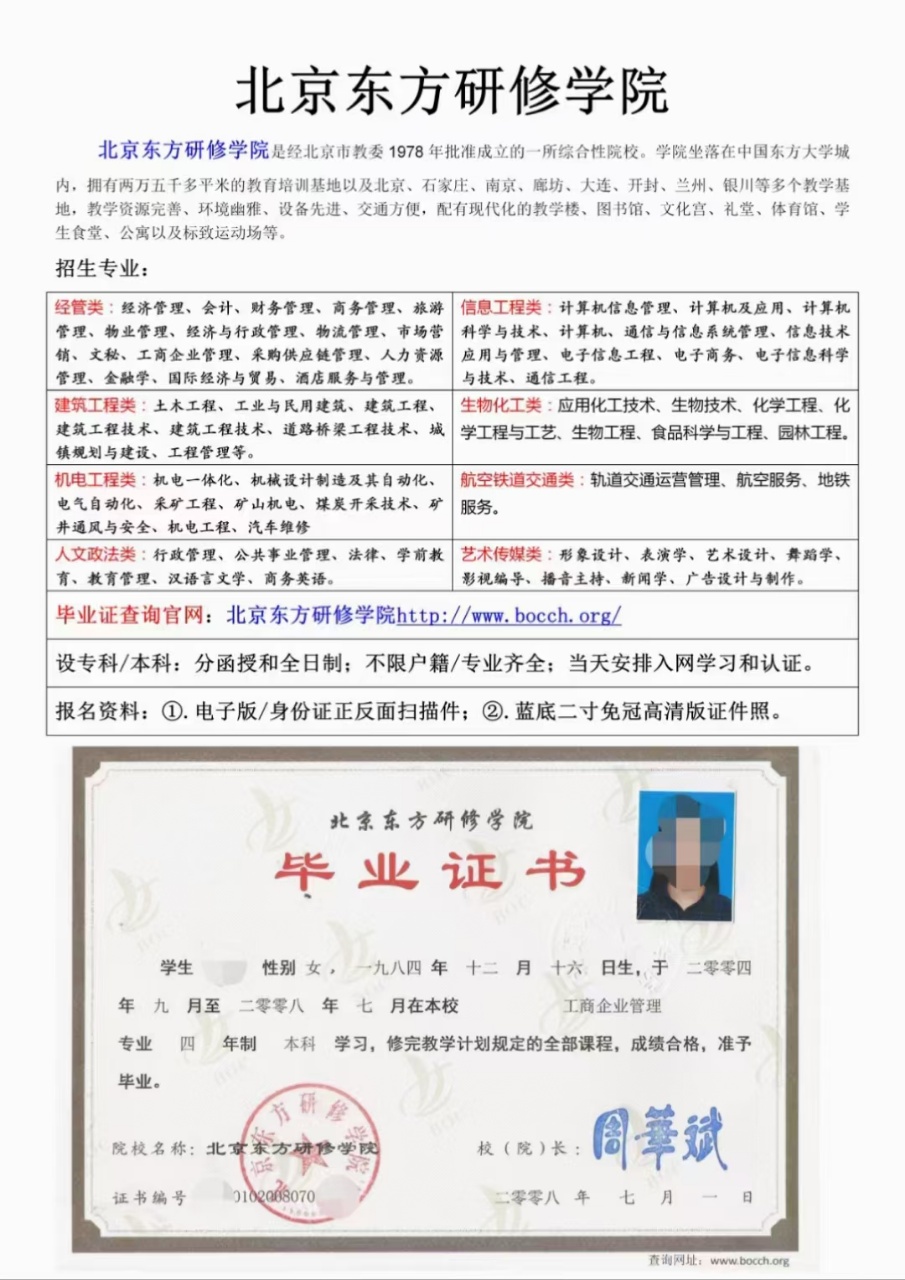 北京东方研修学院
北京东方研修学院是经北京市教委 1978 年批准成立的一所综合性院校。学院坐落在中国东方大学城
内，拥有两万五千多平米的教育培训基地以及北京、石家庄、南京、廊坊、大连、开封、兰州、银川等多个教学基
地，教学资源完善、环境幽雅、设备先进、交通方便，配有现代化的教学楼、图书馆、文化宫、礼堂、体育馆、学
生食堂、公寓以及标致运动场等。
招生专业：
经管类：经济管理、会计、财务管理、商务管理、旅游
管理、物业管理、经济与行政管理、物流管理、市场营
销、文秘、工商企业管理、采购供应链管理、人力资源
管理、金融学、国际经济与贸易、酒店服务与管理。
信息工程类：计算机信息管理、计算机及应用、计算机
科学与技术、计算机、通信与信息系统管理、信息技术
应用与管理、电子信息工程、电子商务、电子信息科学
与技术、通信工程。
建筑工程类：土木工程、工业与民用建筑、建筑工程、
建筑工程技术、建筑工程技术、道路桥梁工程技术、城
镇规划与建设、工程管理等。
生物化工类：应用化工技术、生物技术、化学工程、化
学工程与工艺、生物工程、食品科学与工程、园林工程。
机电工程类：机电一体化、机械设计制造及其自动化、
电气自动化、采矿工程、矿山机电、煤炭开采技术、矿
井通风与安全、机电工程、汽车维修
航空铁道交通类：轨道交通运营管理、航空服务、地铁
服务。
人文政法类：行政管理、公共事业管理、法律、学前教
育、教育管理、汉语言文学、商务英语。
艺术传媒类：形象设计、表演学、艺术设计、舞蹈学、
影视编导、播音主持、新闻学、广告设计与制作。
毕业证查询官网：北京东方研修学院http://www.bocch.org/
设专科/本科：分函授和全日制；不限户籍/专业齐全；当天安排入网学习和认证。
报名资料：①.电子版/身份证正反面扫描件；②.蓝底二寸免冠高清版证件照。
北京东方研修学院
毕业证书
学生 性别 女， 一九八四 年 十二 月 十六 日生，于 二零零四
年 九 月至 二零零八 年 七 月在本校 工商企业管理
专业 四 年制 本科 学习，修完教学计划规定的全部课程，成绩合格，准予
毕业。
院校名称：北京东方研修学院 校（院）长：周華斌
证书编号 0102008070 二零零八 年 七 月 一 日
查询网址：www.bocch.org